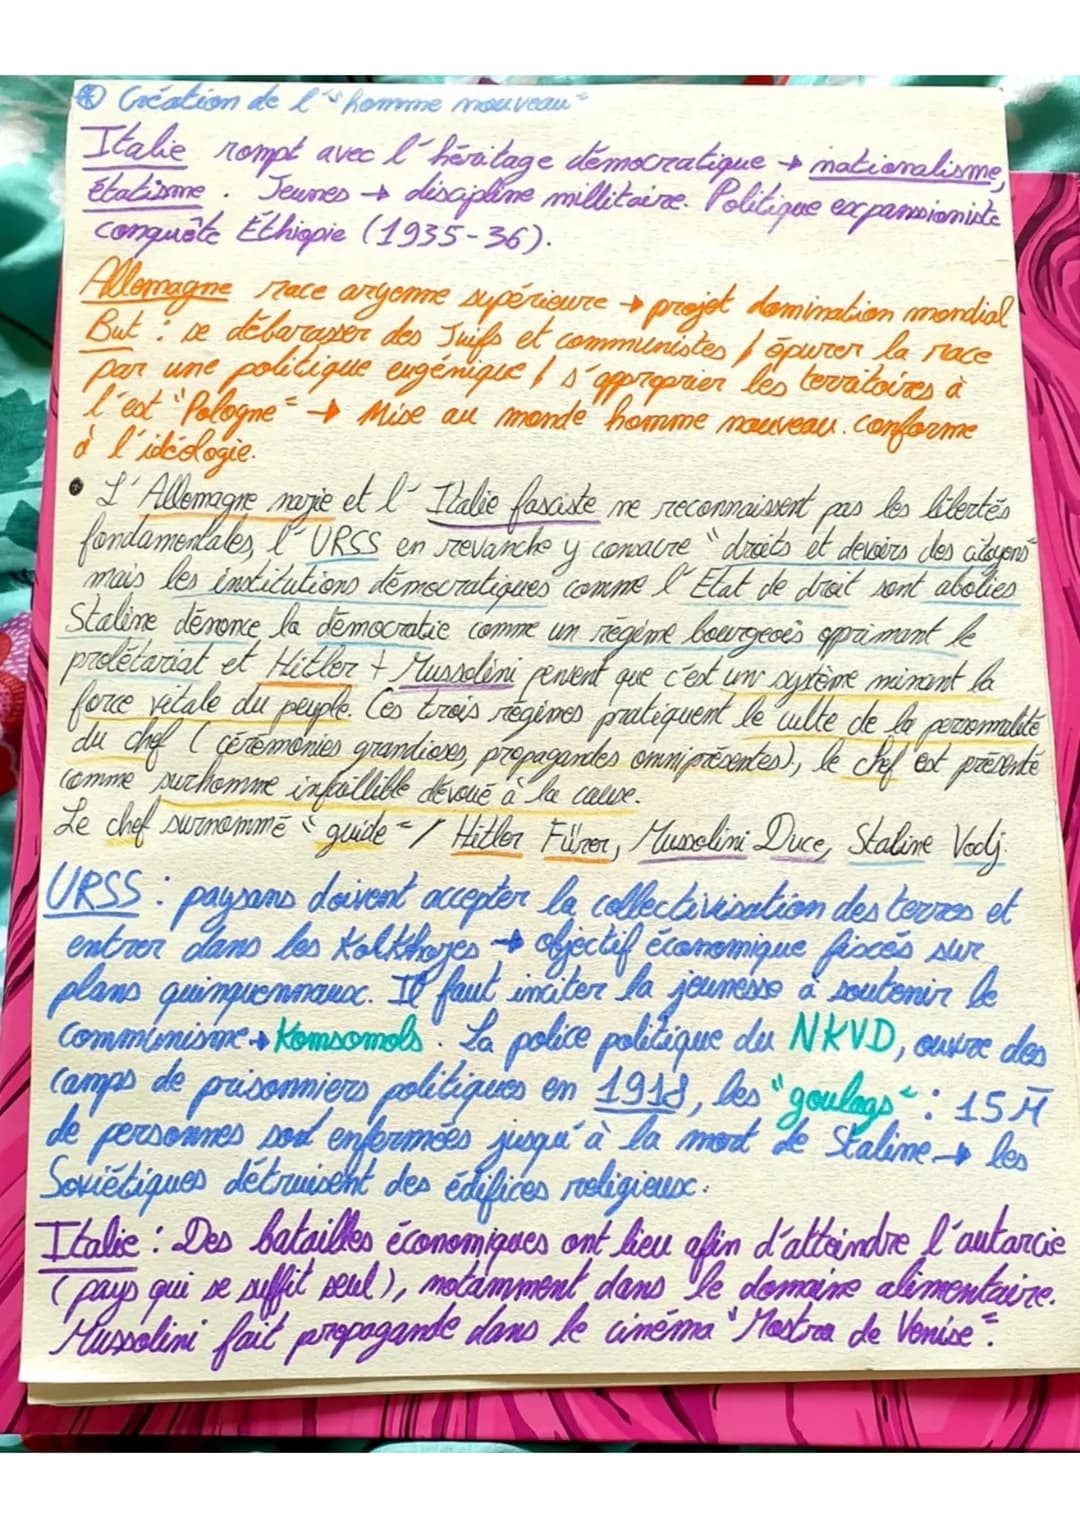 Création de l'"homme nouveau"
Italie rompt avec l'héritage démocratique → nationalisme,
étatisme. Jeunes → discipline millitaire. Politique expansioniste
conquête Éthiopie (1935-36).
Allemagne race aryenne supérieure → projet domination mondial
But : se débarasser des Juifs et communistes / épurer la race
par une politique eugénique / s'approprier les territoires à
l'est "Pologne" → Mise au monde homme nouveau. conforme
à l'idéologie.
• L'Allemagne nazie et l'Italie fasciste ne reconnaissent pas les libertés
fondamentales, l'URSS en revanche y consacre "droits et devoirs des citoyens"
mais les institutions démocratiques comme l'Etat de droit sont abolies
Staline dénonce la démocratie comme un régime bourgeois opprimant le
prolétariat et Hitler + Mussolini pensent que c'est un système minant la
force vitale du peuple. Ces trois régimes pratiquent le culte de la personnalité
du chef (cérémonies grandioses, propagandes omniprésentes), le chef est présenté
comme surhomme infaillible dévoué à la cause.
Le chef surnommé "guide" / Hitler Fürer, Mussolini Duce, Staline Vodj.
URSS : paysans doivent accepter la collectivisation des terres et
entrer dans les Kolkhozes → objectif économique fixés sur
plans quinquennaux. Il faut inciter la jeunesse à soutenir le
communisme → Komsomols. La police politique du NKVD, ouvre des
camps de prisonniers politiques en 1918, les "goulags" : 15 M
de personnes sont enfermées jusqu'à la mort de Staline → les
Soviétiques détruisent des édifices religieux.
Italie : Des batailles économiques ont lieu afin d'atteindre l'autarcie
(pays qui se suffit seul), notamment dans le domaine alimentaire.
Mussolini fait propagande dans le cinéma "Mostra de Venise".